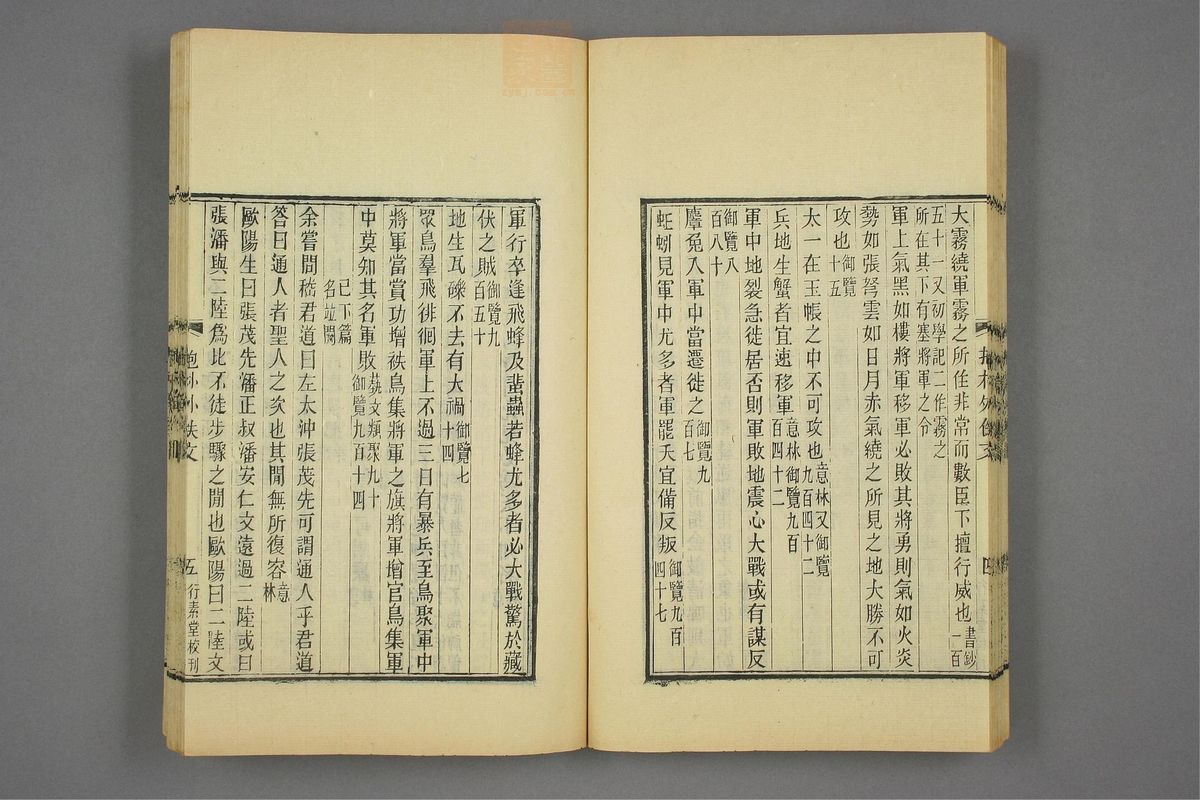 大霧繞軍霧之所在非常而數臣下擅行威也書鈔一百
五十一又初學記二作霧之所在其下有塞將軍之令
軍上氣黑如樓將軍移軍必敗其將勇則氣如火炎
勢如張弩雲如日月赤氣繞之所見之地大勝不可
攻也御覽十五
太一在玉帳之中不可攻也意林又御覽九百四十二
兵地生蟹者宜速移軍意林御覽九百四十二
軍中地裂急徙居否則軍敗地震心大戰或有謀反
御覽八百八十
麞兔入軍中當遷徙之御覽九百七
蚯蚓見軍中尤多者軍罷天宜備反叛御覽九百四十七
四
軍行卒逢飛蜂及蜚蟲若蜂尤多者必大戰驚於藏
伏之賊御覽九百五十
地生瓦礫不去有大禍御覽七十四
眾鳥羣飛徘徊軍上不過三日有暴兵至鳥聚軍中
將軍當賞功增秩鳥集將軍之旗將軍增官鳥集軍
中莫知其名軍敗藝文類聚九十御覽九百十四
已下篇名竝闕
余嘗問嵇君道曰左太沖張茂先可謂通人乎君道
答曰通人者聖人之次也其閒無所復容意林
歐陽生曰張茂先潘正叔潘安仁文遠過二陸或曰
張潘與二陸爲比不徒步驟之閒也歐陽曰二陸文
抱朴外佚文
五
行素堂校刊